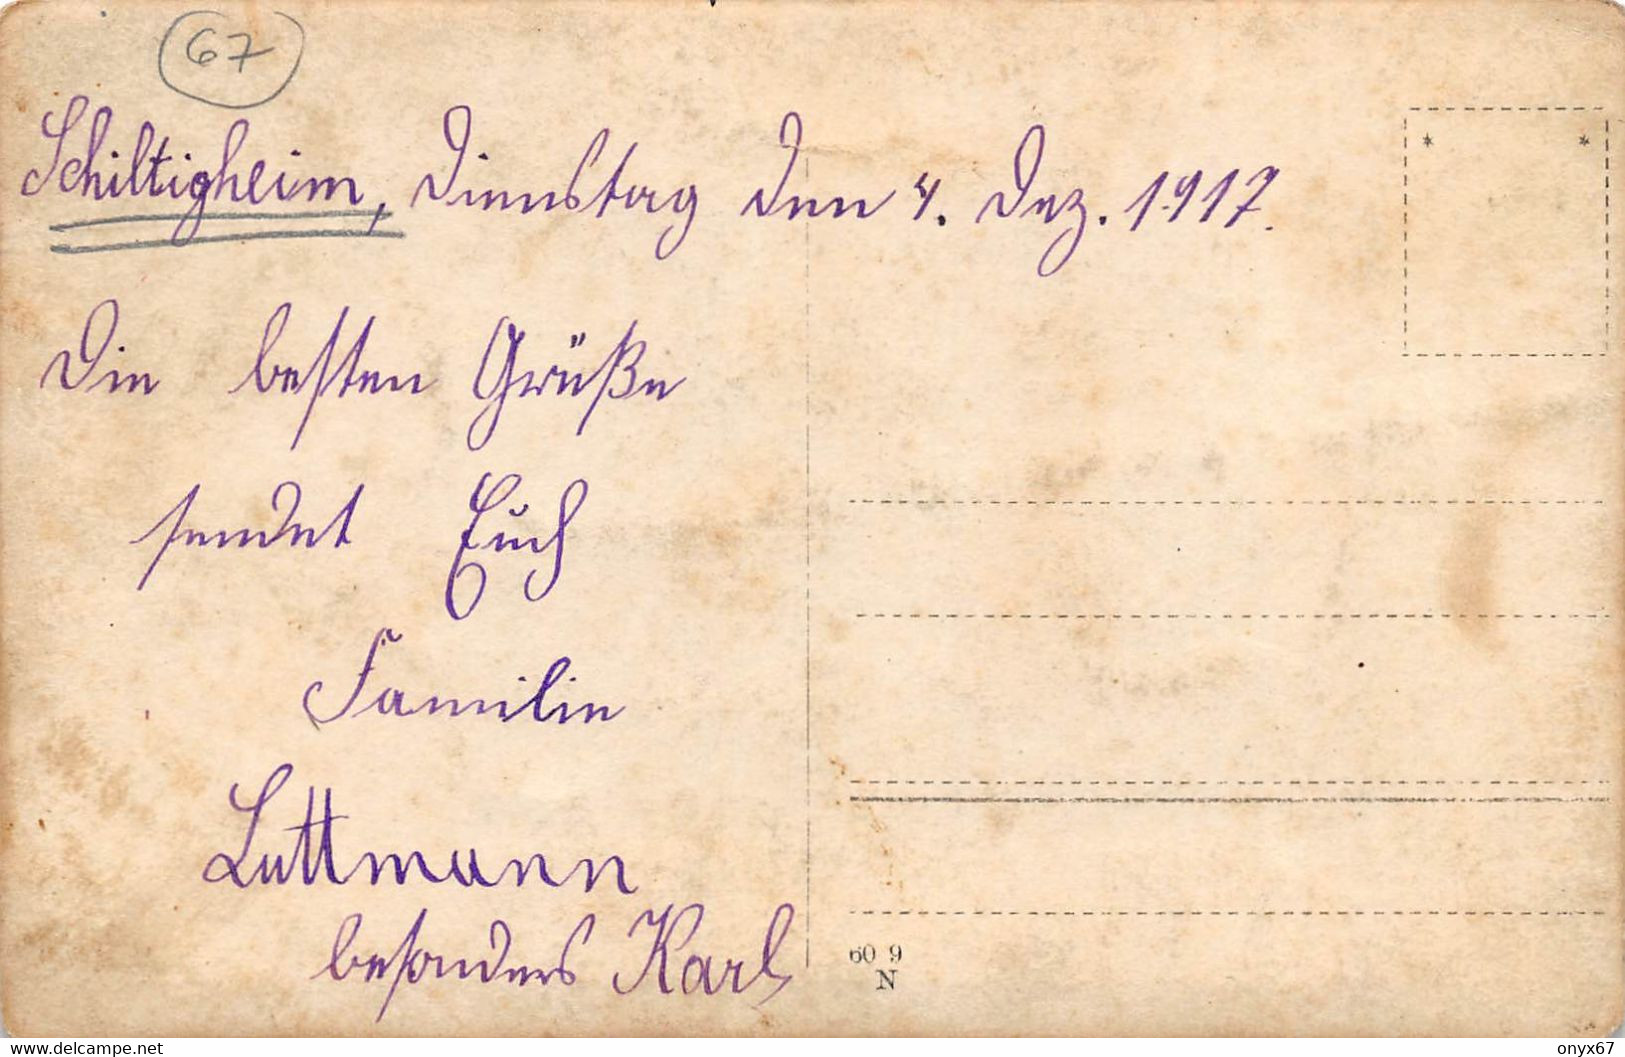 67
Schiltigheim, Dienstag den 4. Dez. 1917.
Die besten Grüße
sendet Euch
Familie
Luttmann
besonders Karl
60 9
N
www.delcampe.net
onyx67